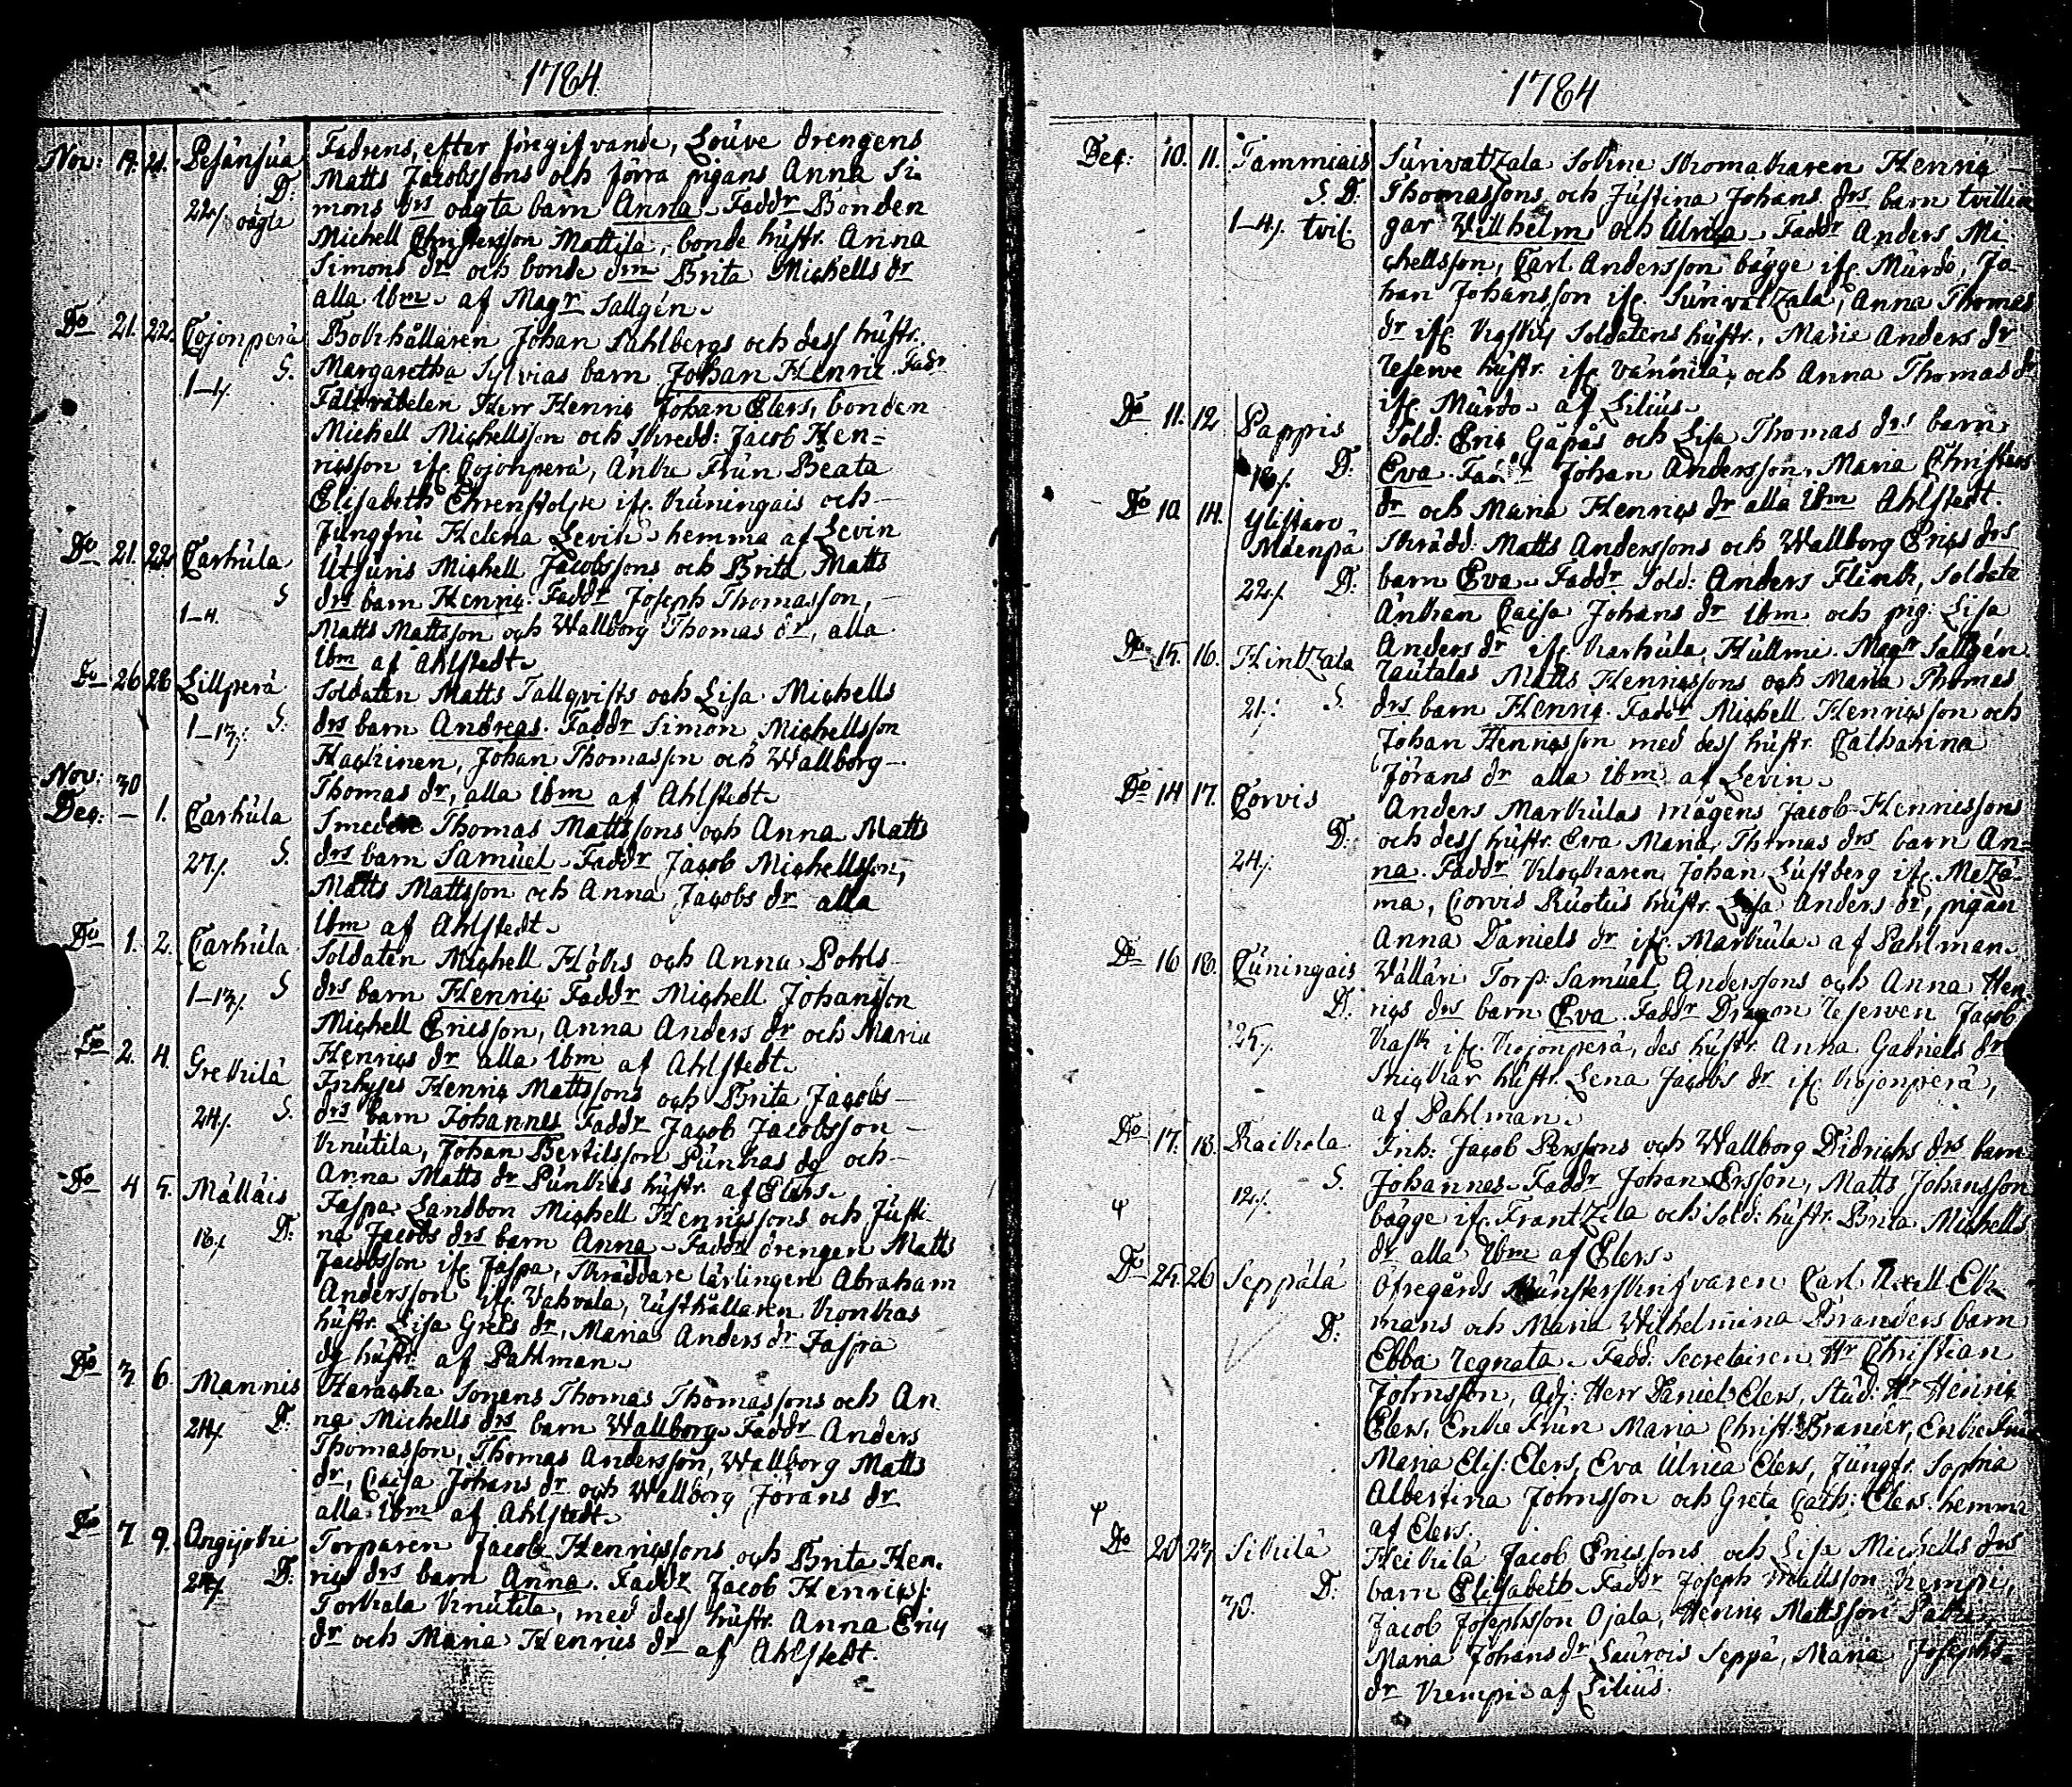 1784
Nov: 19. 21. Pesänsúa Fadrens, efter föregifvande, Loúve drengens
D: Matts Jacobssons och förra pigans Anna Si
22/ oägta mons drs oägta barn Anna. Faddr Bonden
Michell Christersson Mattila, bonde hústr. Anna
Simons dr och bonde Brita Michells dr
alla ibm. af Magr Sallgén.
Do 21. 22. Cojonperä Bokhållaren Johan Pahlbergs och dess hústr.
S. Margaretha Sylvias barn Johan Henric. Fadr
1-4/. Fältväbelen Herr Henriq Johan Elers, bonden
Michell Michellsson och Skredd: Jacob Hen=
riqsson ifr. Cojonperä, Änke Frún Beata
Elisabeth Ehrenstolpe ifr. Kúningais och
Jungfrú Helena Levin hemma af Levin
Do 21. 22. Carhúla Útjúris Michell Jacobssons och Brita Matts
S drs barn Henriq. Faddr Joseph Thomasson,
1-4. Matts Mattsson och Wallborg Thomas dr, alla
ibm af Ahlstedt.
Do 26 28 Lillperä Soldaten Matts Tallqvists och Lisa Michells
1-13/: S. drs barn Andreas. Faddr Simon Michellsson
Hackinen, Johan Thomasson och Wallborg
Nov: 30 Thomas dr, alla ibm af Ahlstedt.
Dec: - 1. Carhúla Smeden Thomas Mattssons och Anna Matts
27/. S. drs barn Samúel. Faddr Jacob Michellsson,
Matts Mattsson och Anna Jacobs dr alla
ibm af Ahlstedt.
Do 1. 2. Carhúla Soldaten Michell Höks och Anna Pohls
1-13/. S drs barn Henriq. Faddr Michell Johansson
Michell Ericsson, Anna Anders dr och Maria
Do 2. 4. Grekilä Henriqs dr alla ibm af Ahlstedt.
Inhyses Henriq Mattssons och Brita Jacobs
24/. S. drs barn Johannes Faddr Jacob Jacobsson
Knútila, Johan Bertilsson Púnkas dq och
Anna Matts dr Púnkas hústr. af Elers.
Do 4 5. Mälläis Jaspa Landbon Michell Henriqssons och Jústi
18/. D: na Jacobs drs barn Anna. Faddr drengen Matts
Jacobsson ifr Jaspa, Skräddare lärlingen Abraham
Andersson ifr. Vahvala, Rústhållaren Konkas
hústr. Lisa Grels dr, Maria Anders dr Jaspa
dq hústr af Pahlman.
Do 3. 6. Mannis Haracka Sonens Thomas Thomassons och An
24/. D: na Michells drs barn Wallborg. Faddr Anders
Thomasson, Thomas Andersson, Wallborg Matts
dr, Caisa Johans dr och Wallborg Jörans dr
alla ibm af Ahlstedt.
Do 7 9. Torparen Jacob Henriqssons och Brita Hen.
24/. D: riqs drs barn Anna. Faddr Jacob Henriqs:
Torkala Knútila, med dess hústr. Anna Eriq
dr och Maria Henrics dr af Ahlstedt.
1784
Dec: 10. 11. Tammiais Súrivatzala Sohne Skomakaren Henriq
S. D: Thomassons och Jústina Johans drs barn tvillin
1-4/. tvil. gar Wilhelm och Ulrica. Faddr Anders Mi
chellsson, Carl Andersson bägge ifr. Múrdo, Jo
han Johansson ifr. Súrivatzala, Anna Thomas
dr ifr. Soldatens hústr., Maria Anders dr
Reserve hústr. ifr Vännilä, och Anna Thomas dr
ifr. Múrdo. af Lilius.
Do 11. 12 Pappis Sold: Eriq Gåpås och Lisa Thomas drs barn
18/. D: Eva. Faddr Johan Andersson, Maria Christers
dr och Maria Henriqs dr alla ibm Ahlstedt.
Do 10 14. Ylistaro Skrädd. Matts Anderssons och Wallborg Eriqs drs
Mäenpä
22/. D: barn Eva. Faddr Sold: Anders Flink, Soldate
Änkan Caisa Johans dr ibm och pig: Lisa
Anders dr ifr. Karhúla, Húllmi. Magr Sallgén.
Do 15. 16. Hintzala Rautalas Matts Henriqssons och Maria Thomas
21/: S. drs barn Henriq. Faddr Michell Henriqsson och
Johan Henriqsson med dess hústr. Catharina
Jörans dr alla ibm af Levin.
Do 14 17. Corvis Anders Markúlas mågens Jacob Henricssons
D: och dess hústr. Eva Maria Thomas drs barn An=
24/. na. Faddr Klockaren Johan Lústberg ifr. Metzä=
ma, Corvis Rúotús hústr. Lisa Anders dr, pigan
Anna Daniels dr ifr. Markúla. af Pahlman.
Do 16 18. Cúningais Välläri Torp. Samúel Anderssons och Anna Hen
D: riqs drs barn Eva. Faddr Dragon Reserven Jacob
25/. Rask ifr. Kojonperä, des hústr. Anna Gabriels dr
Snickar hústr. Lena Jacobs dr ifr Kojonperä,
af Pahlman.
Do 17. 18. Raikola Inh: Jacob Perssons och Wallborg Didrichs drs barn
12/. S. Johannes. Faddr Johan Ersson, Matts Johansson
bägge ifr. Frantzila och Sold: hústr. Brita Michells
dr. alla ibm af Elers.
Do 25. 26 Seppälä Öfregårds Múnsterskrifvaren Carl Axell Ek
D: mans och Maria Wilhelmina Branders barn
Ebba Regnata. Fadd: Secreteiren Hr Christian
Johnsson, Adj: Herr Daniel Elers, Stúd: Hr Henriq
Elers, Enke Frún Maria Christ: Brander, Enke Frú
Maria Elis: Elers, Eva Úlrica Elers, Júngfr. Sophia
Albertina Johnsson och Greta Cath: Elers. hemma
af Elers.
Do 20 27. Sikilä Heikilä Jacob Ericssons och Lisa Michells drs
D: barn Elisabeth. Faddr Joseph Mattsson Kempi,
30. Jacob Josephsson Ojala, Henriq Mattsson
Maria Johans dr Laúrois Seppä, Maria Josephs
dr Kempi. af Lilius.